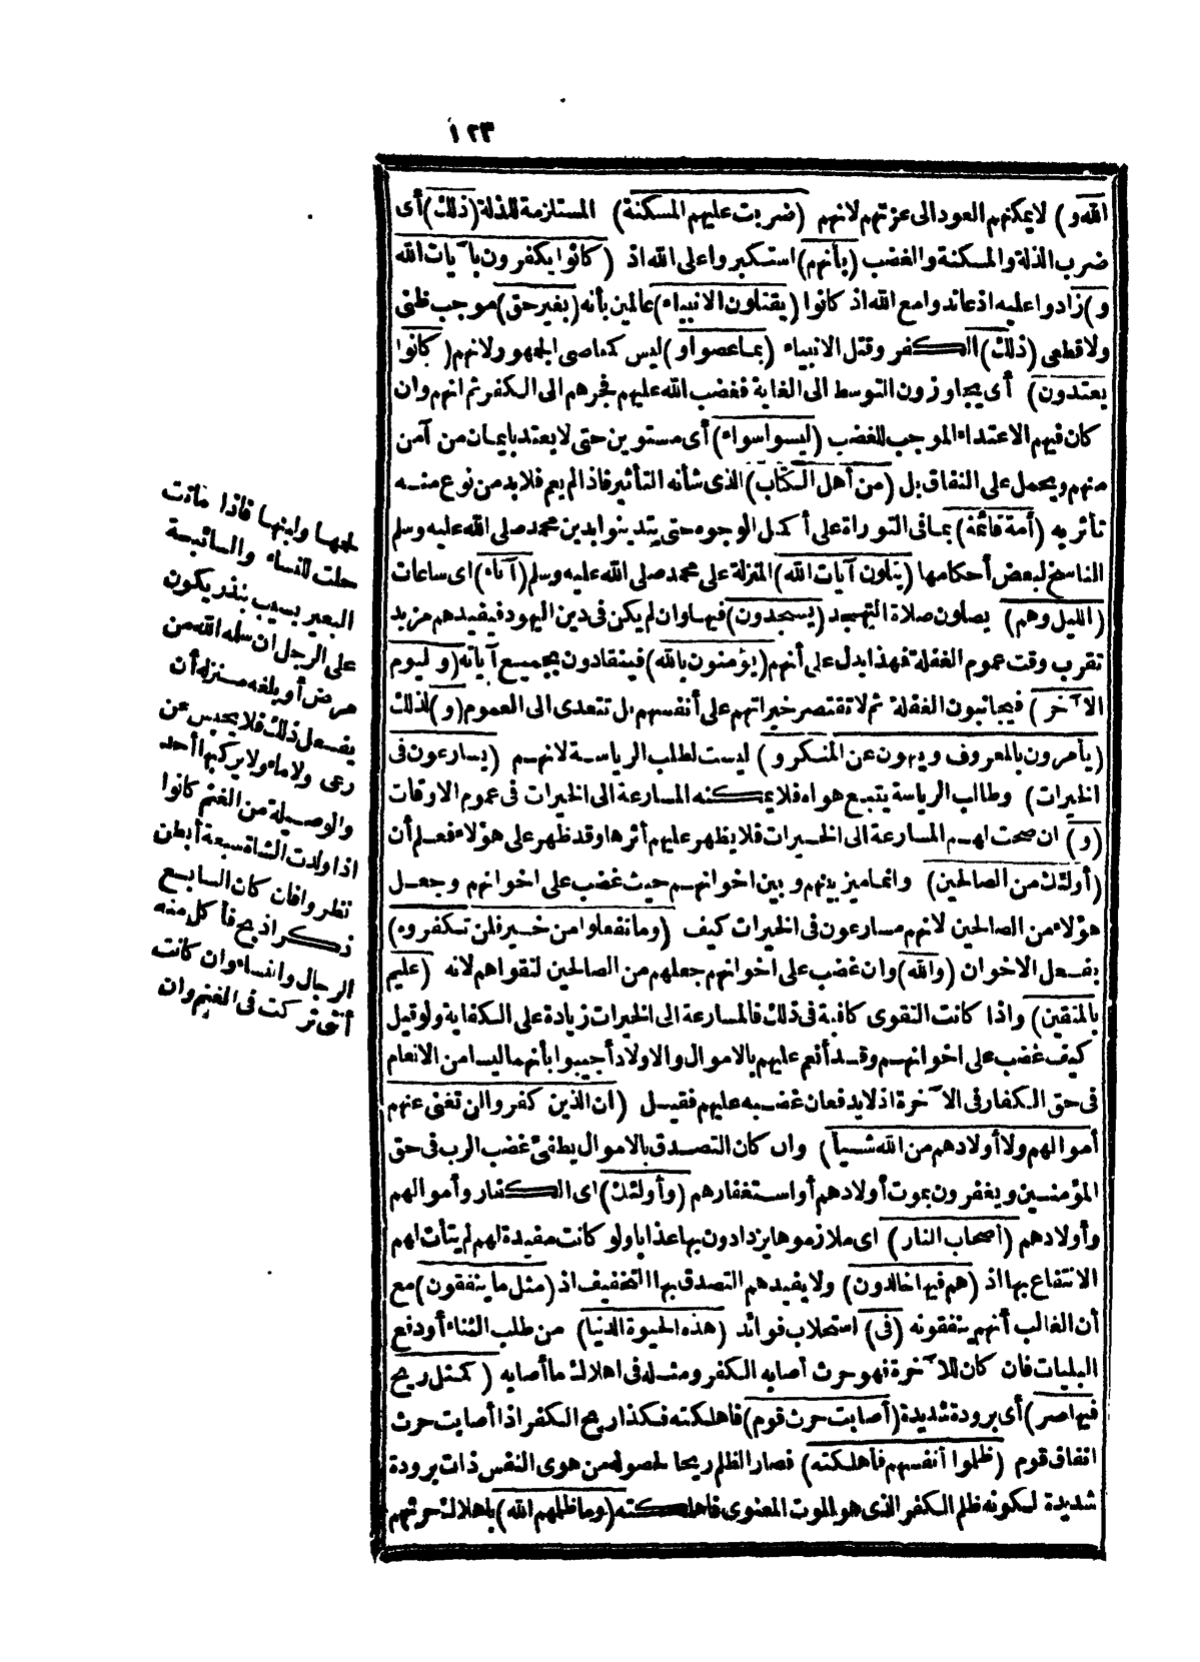 ١٢٣
الله و) لا يمكنهم العود الى عزتهم لانهم (ضربت عليهم المسكنة) المستلزمة للذلة (ذلك) أى
ضرب الذلة والمسكنة والغضب (بأنهم) استكبروا على الله اذ (كانوا يكفرون بآيات الله
و) زادوا عليه اذ عاندوا مع الله اذ كانوا (يقتلون الانبياء) عالمين بأنه (بغير حق) موجب ظنى
ولا قطعى (ذلك) الكفر وقتل الانبياء (بما عصوا و) ليس كمعاصى الجمهور ولانهم (كانوا
يعتدون) أى يجاوزون التوسط الى الغاية فغضب الله عليهم فجرهم الى الكفر ثم انهم وان
كان فيهم الاعتداء الموجب للغضب (ليسوا سواء) أى مستوين حتى لا يعتد بايمان من آمن
منهم ويحمل على النفاق بل (من أهل الكتاب) الذى شأنه التأثير فاذا لم يعم فلا بد من نوع منه
تأثر به (أمة قائمة) بما فى التوراة على أكمل الوجوه حتى يتدينوا بدين محمد صلى الله عليه وسلم
الناسخ لبعض أحكامها (يتلون آيات الله) المنزلة على محمد صلى الله عليه وسلم (آناء) اى ساعات
(الليل وهم) يصلون صلاة التهجد (يسجدون) فيها وان لم يكن فى دين اليهود فيفيدهم مزيد
تقرب وقت عموم الغفلة فهذا يدل على أنهم (يؤمنون بالله) فينقادون بجميع آياته (و ليوم
الآخر) فيجانبون الغفلة ثم لا تقتصر خيراتهم على أنفسهم بل تتعدى الى العموم (و) لذلك
(يأمرون بالمعروف وينهون عن المنكر و) ليست لطلب الرياسة لانهم (يسارعون فى
الخيرات) وطالب الرياسة يتبع هواه فلا يمكنه المسارعة الى الخيرات فى عموم الاوقات
(و) ان صحت لهم المسارعة الى الخيرات فلا يظهر عليهم أثرها وقد ظهر على هؤلاء فعلم أن
(أولئك من الصالحين) وانما ميز بينهم وبين اخوانهم حيث غضب على اخوانهم وجعل
هؤلاء من الصالحين لانهم مسارعون فى الخيرات كيف (وما تفعلوا من خير فلن تكفروه)
بفعل الاخوان (والله) وان غضب على اخوانهم جعلهم من الصالحين لتقواهم لانه (عليم
بالمتقين) واذا كانت التقوى كافية فى ذلك فالمسارعة الى الخيرات زيادة على الكفاية ولو قيل
كيف غضب على اخوانهم وقد أنعم عليهم بالاموال والاولاد أجيبوا بأنهما ليسا من الانعام
فى حق الكفار فى الآخرة اذ لا يدفعان غضبه عليهم فقيل (ان الذين كفروا لن تغنى عنهم
أموالهم ولا أولادهم من الله شيأ) وان كان التصدق بالاموال يطفئ غضب الرب فى حق
المؤمنين ويغفرون بموت أولادهم أو استغفارهم (وأولئك) اى الكفار وأموالهم
وأولادهم (أصحاب النار) اى ملازموها يزدادون بها عذابا ولو كانت مفيدة لهم لم يتأت لهم
الانتفاع بها اذ (هم فيها خالدون) ولا يفيدهم التصدق بها التخفيف اذ (مثل ما ينفقون) مع
أن الغالب أنهم ينفقونه (فى) استجلاب فوائد (هذه الحيوة الدنيا) من طلب الثناء أو دفع
البليات فان كان للآخرة فهو حرث أصابه الكفر ومثله فى اهلاك ما أصابه (كمثل ريح
فيها صر) أى برودة شديدة (أصابت حرث قوم) فاهلكته فكذا ريح الكفر اذا أصابت حرث
انفاق قوم (ظلموا أنفسهم فأهلكته) فصار الظلم ريحا لحصوله من هوى النفس ذات برودة
شديدة لكونه ظلم الكفر الذى هو الموت المعنوى فاهلكته (وما ظلمهم الله) باهلاك حرثهم
لحمها ولبنها فاذا ماتت
حلت للنساء والسائبة
البعير يسيب بنذر يكون
على الرجل ان سلمه الله من
مرض أو بلغه منزله أن
يفعل ذلك فلا يحبس عن
رعى ولا ماء ولا يركبها أحد
والوصيلة من الغنم كانوا
اذا ولدت الشاة سبعة أبطن
نظروا فان كان السابع
ذكرا ذبح فأكل منه
الرجال والنساء وان كانت
أنثى تركت فى الغنم وان